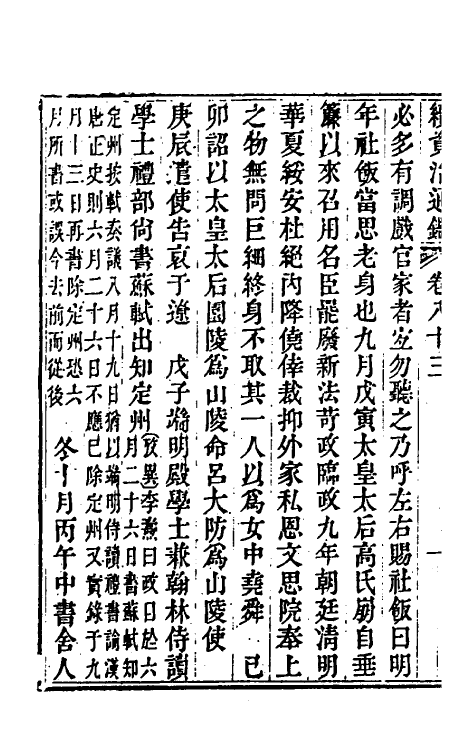 續資治通鑑 卷八十三 一
必多有調戲官家者宜勿聽之乃呼左右賜社飯曰明
年社飯當思老身也九月戊寅太皇太后高氏崩自垂
簾以來召用名臣罷廢新法苛政臨政九年朝廷清明
華夏綏安杜絕內降僥倖裁抑外家私恩文思院奉上
之物無問巨細終身不取其一人以爲女中堯舜 己
卯詔以太皇太后園陵爲山陵命呂大防爲山陵使
庚辰遣使告哀于遼 戊子端明殿學士兼翰林侍讀
學士禮部尚書蘇軾出知定州
攷異李燾曰政目於六
月二十六日書蘇軾知
定州按軾奏議八月十九日猶以端明侍讀禮書論漢
唐正史則六月二十六日不應已除定州又實錄于九
月十三日再書除定州恐六
月所書或誤今去前而從後
冬十月丙午中書舍人